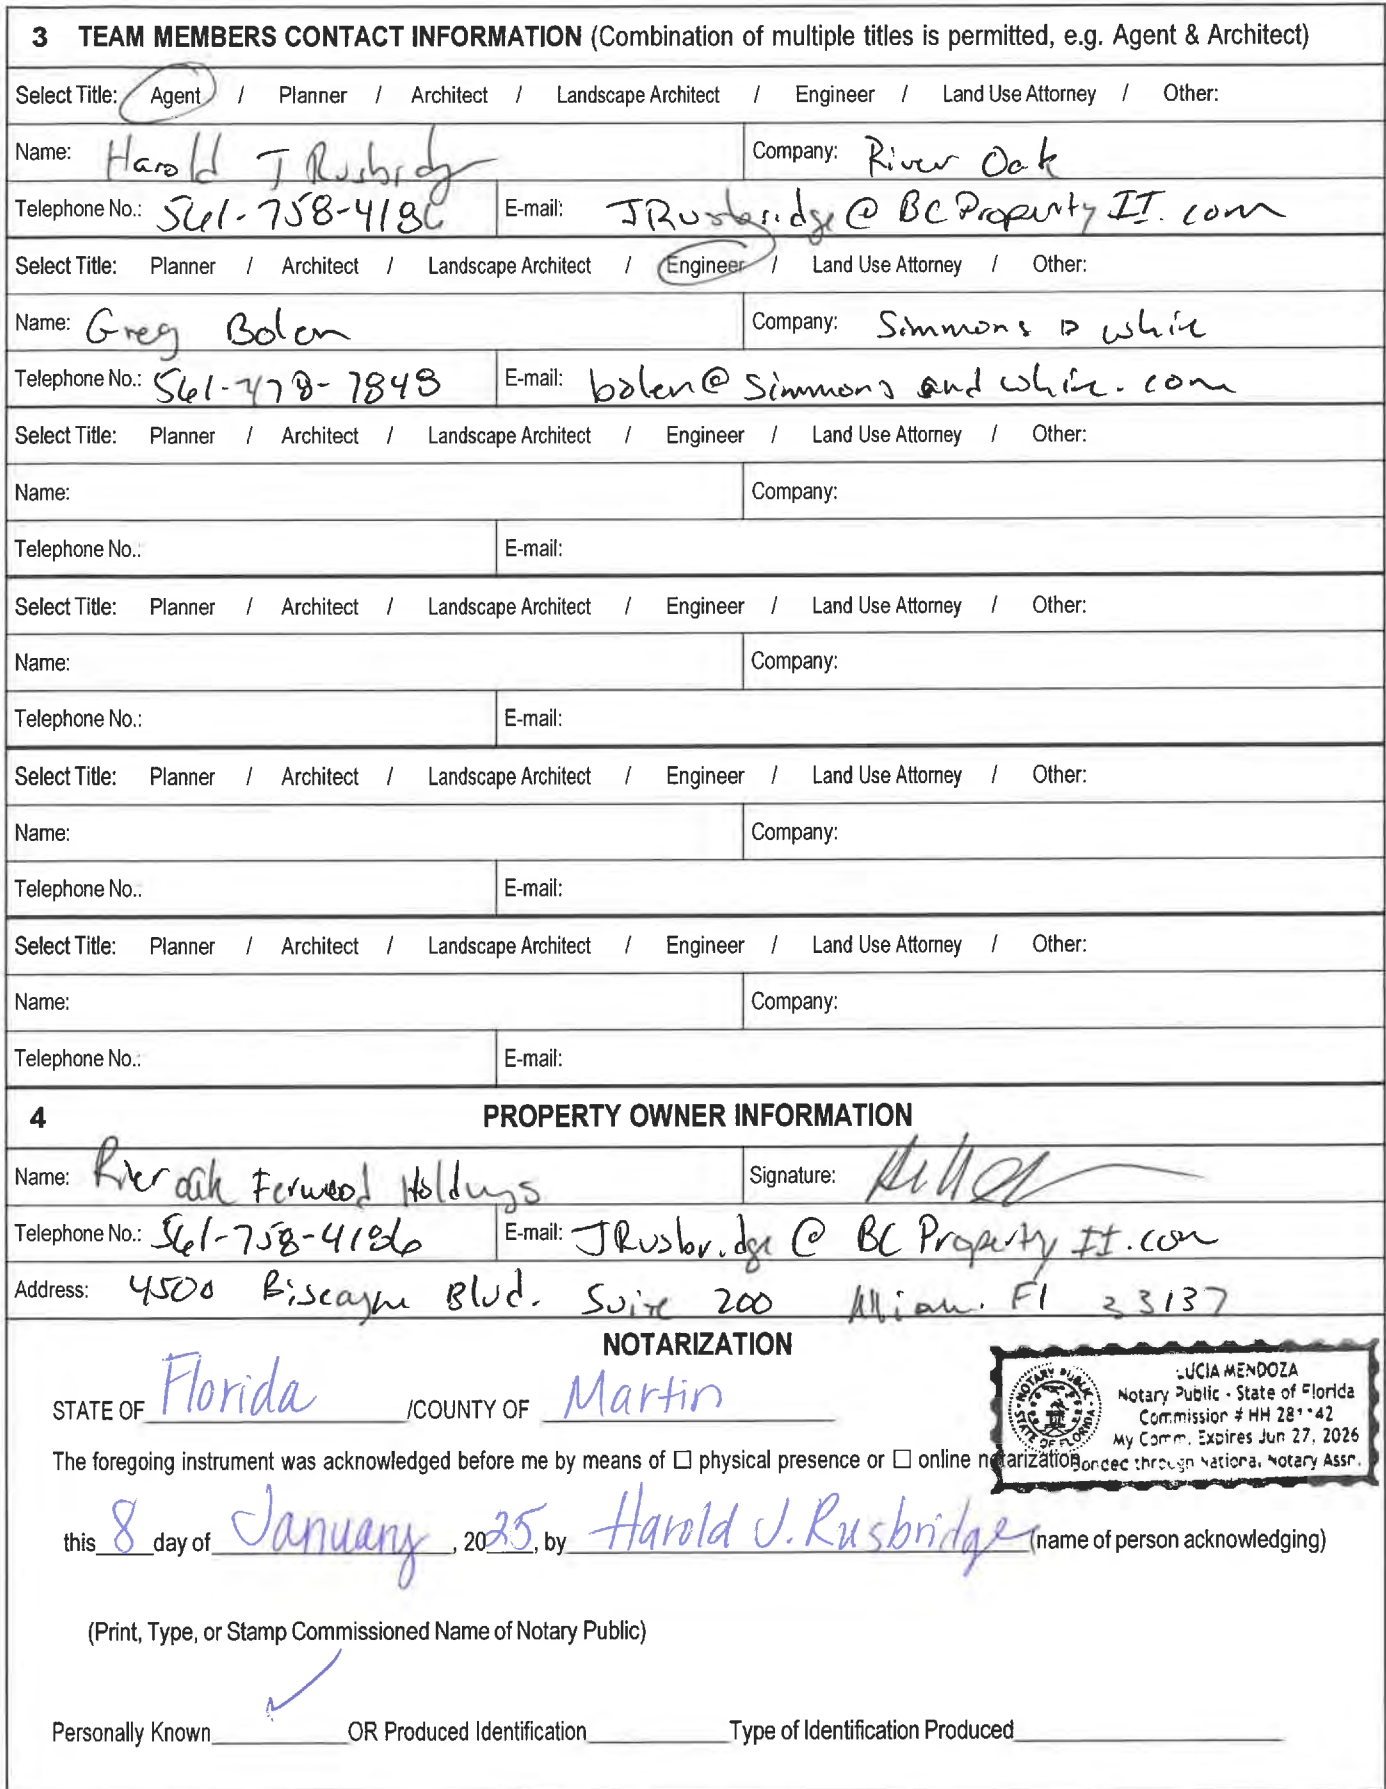 3 TEAM MEMBERS CONTACT INFORMATION (Combination of multiple titles is permitted, e.g. Agent & Architect)
Select Title: Agent / Planner / Architect / Landscape Architect / Engineer / Land Use Attorney / Other:
Name: Harold J Rusbridge Company: River Oak
Telephone No.: 561-758-4186 E-mail: JRusbridge@BCPropertyII.com
Select Title: Planner / Architect / Landscape Architect / Engineer / Land Use Attorney / Other:
Name: Greg Bolen Company: Simmons & White
Telephone No.: 561-478-7848 E-mail: bolen@simmonsandwhite.com
Select Title: Planner / Architect / Landscape Architect / Engineer / Land Use Attorney / Other:
Name: Company:
Telephone No.: E-mail:
Select Title: Planner / Architect / Landscape Architect / Engineer / Land Use Attorney / Other:
Name: Company:
Telephone No.: E-mail:
Select Title: Planner / Architect / Landscape Architect / Engineer / Land Use Attorney / Other:
Name: Company:
Telephone No.: E-mail:
Select Title: Planner / Architect / Landscape Architect / Engineer / Land Use Attorney / Other:
Name: Company:
Telephone No.: E-mail:
4 PROPERTY OWNER INFORMATION
Name: River oak Fernwood Holdings Signature:
Telephone No.: 561-758-4186 E-mail: JRusbridge@BCPropertyII.com
Address: 4500 Biscayne Blvd. Suite 200 Miami Fl 33137
NOTARIZATION
STATE OF Florida /COUNTY OF Martin
LUCIA MENDOZA
Notary Public - State of Florida
Commission # HH
My Comm. Expires Jun 27, 2026
Bonded through National Notary Assn.
NOTARY PUBLIC STATE OF FLORIDA
The foregoing instrument was acknowledged before me by means of ☐ physical presence or ☐ online notarization
this 8 day of January, 2025, by Harold J. Rusbridge (name of person acknowledging)
(Print, Type, or Stamp Commissioned Name of Notary Public)
Personally Known ✓ OR Produced Identification Type of Identification Produced